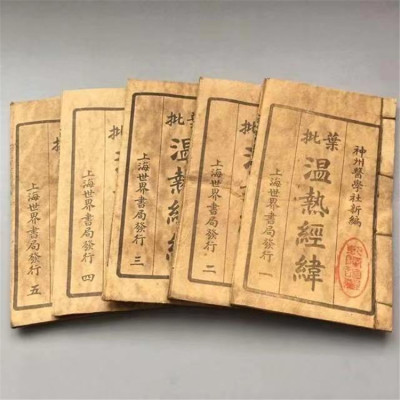 神州醫學社新編
葉批
温熱經緯
上海世界書局發行 一
批
温
上海世界書局發行 二
批
温熱經緯
上海世界書局發行 三
批
上海世界書局發行 四
上海世界書局發行 五